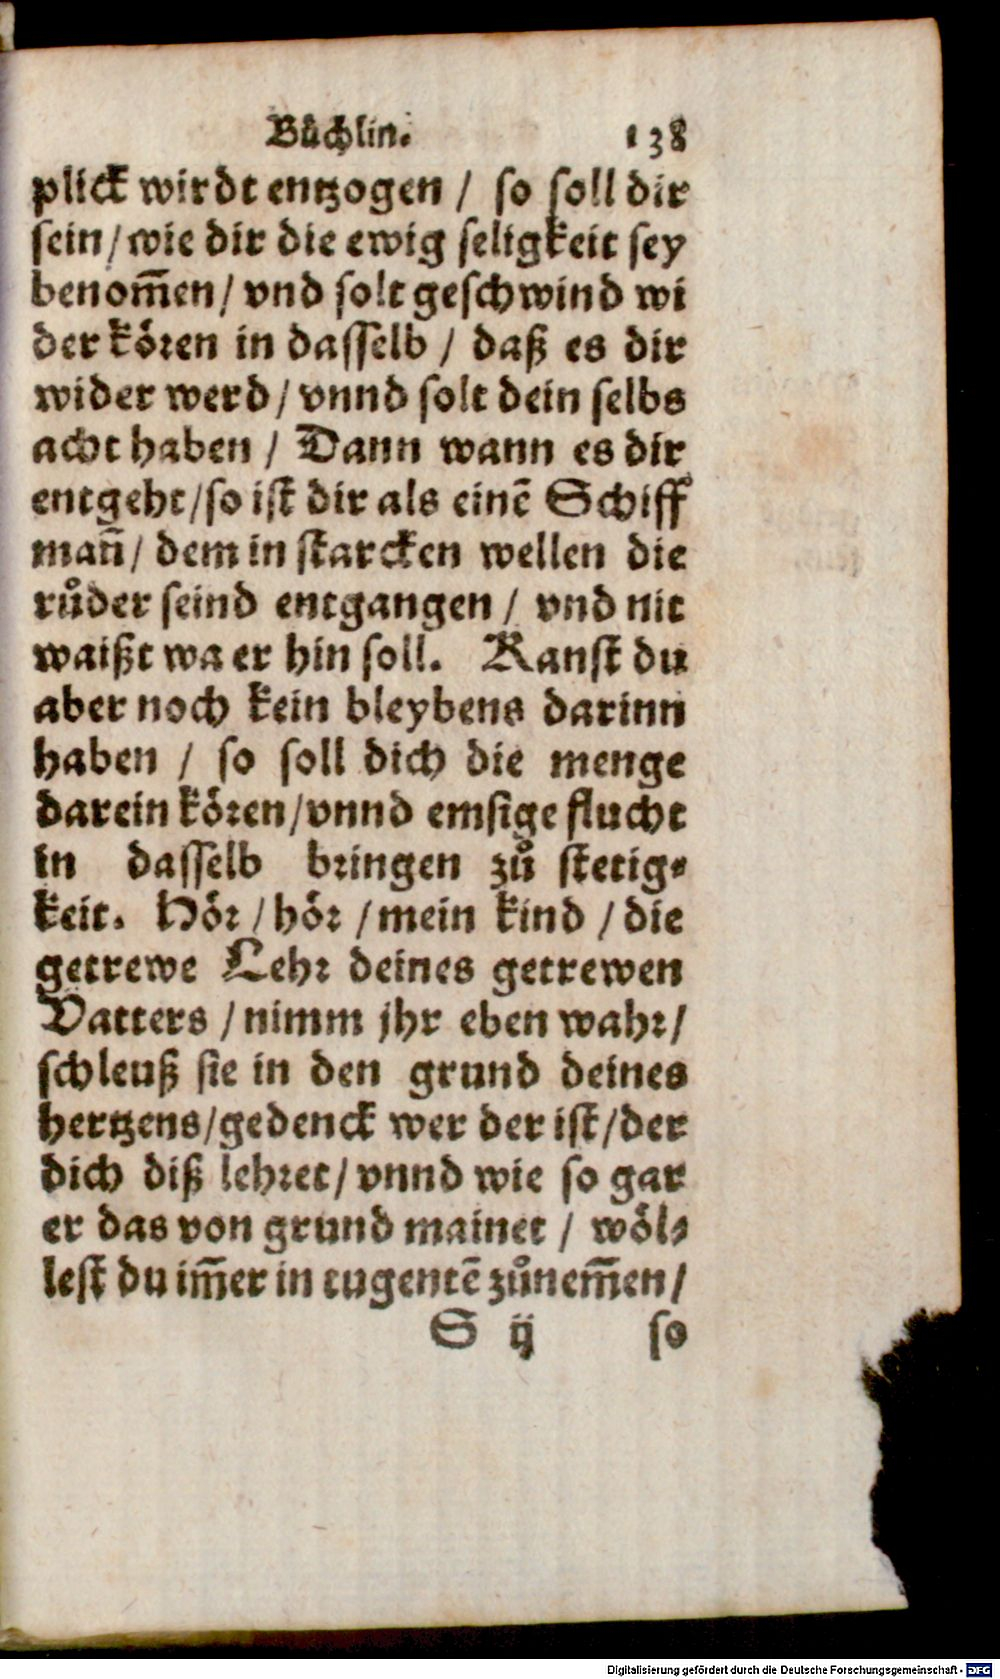 Bůchlin. 138
plick wirdt entzogen / so soll dir
sein / wie dir die ewig seligkeit sey
benom̃en / vnd solt geschwind wi
der kören in dasselb / daß es dir
wider werd / vnnd solt dein selbs
acht haben / Dann wann es dir
entgeht / so ist dir als einē Schiff
man̄ / dem in starcken wellen die
růder seind entgangen / vnd nit
waißt wa er hin soll. Kanst du
aber noch kein bleybens darinn
haben / so soll dich die menge
darein kören / vnnd emsige flucht
in dasselb bringen zů stetig⸗
keit. Hör / hör / mein kind / die
getrewe Lehr deines getrewen
Vatters / nimm jhr eben wahr /
schleuß sie in den grund deines
hertzens / gedenck wer der ist / der
dich diß lehret / vnnd wie so gar
er das von grund mainet / wöl⸗
lest du im̃er in tugentē zůnem̃en /
S ij so
Digitalisierung gefördert durch die Deutsche Forschungsgemeinschaft - DFG